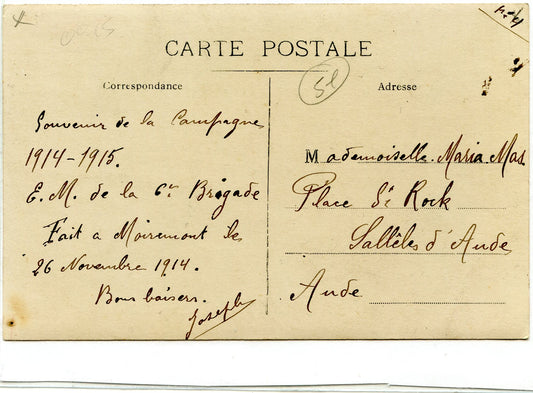 CARTE POSTALE
Correspondance
Souvenir de la Campagne
1914-1915.
E. M. de la 6e Brigade
Fait a Moiremont les
26 Novembre 1914.
Bons baisers.
Joseph
51
Adresse
Mademoiselle Maria Mas
Place St Rock
Sallèles d'Aude
Aude